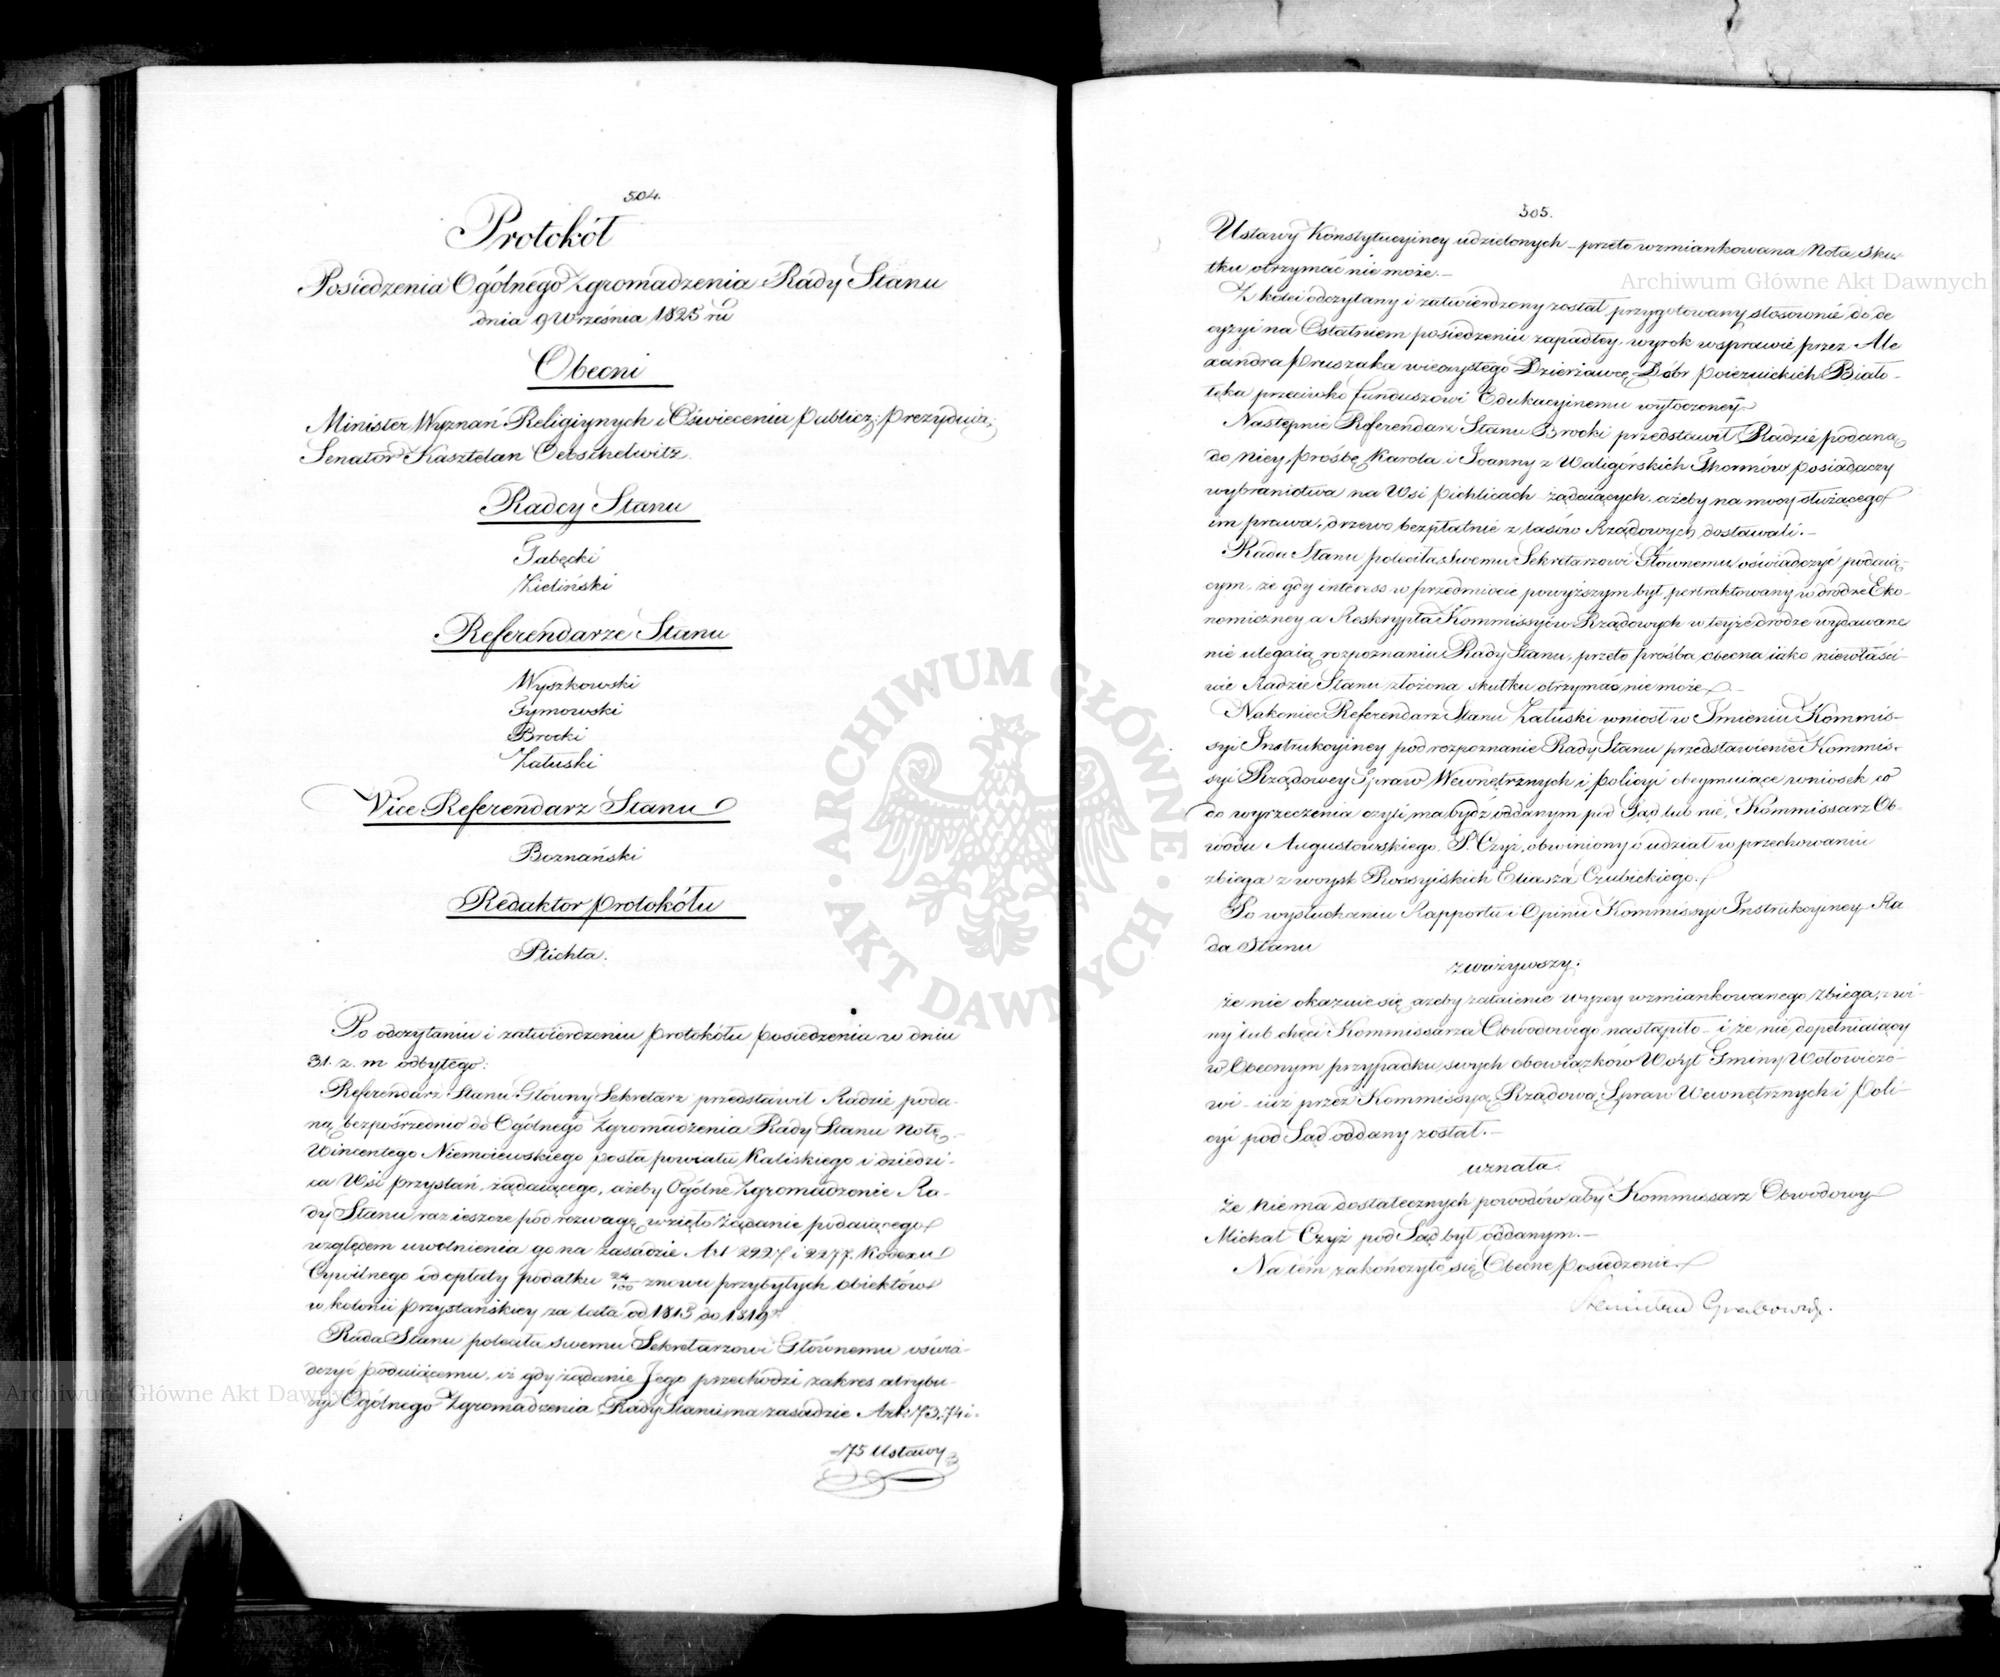 504.
Protokół
Posiedzenia Ogólnego Zgromadzenia Rady Stanu
dnia 9 Września 1825 ru
Obecni
Minister Wyznań Religiynych i Oświecenia publicz: prezyduią:
Senator Kasztelan Oebschelwitz
Radcy Stanu
Tabęcki
Zieliński
Referendarze Stanu
Wyszkowski
Tymowski
Brocki
Załuski
Vice Referendarz Stanu
Boznański
Redaktor protokółu
Plichta.
Po odczytaniu i zatwierdzeniu protokółu posiedzenia w dniu
31. z. m odbytego:
Referendarz Stanu Główny Sekretarz przedstawił Radzie poda-
ną bezpośrednio do Ogólnego Zgromadzenia Rady Stanu Notę
Wincentego Niemoiewskiego posła powiatu Kaliskiego i dziedzi-
ca Wsi przystań, żądaiącego, ażeby Ogólne Zgromadzenie Ra-
dy Stanu raz ieszcze pod rozwagę wzięło żądanie podaiącego
względem uwolnienia go na zasadzie Art 2227 i 2277. Kodexu
Cywilnego od opłaty podatku 24/100 znowu przybyłych obiektów
w kolonii przystańskiey za lata od 1813 do 1819.
Rada Stanu poleciła swemu Sekretarzowi Głównemu oświa-
dczyć podaiącemu, iż gdy żądanie Jego przechodzi zakres atrybu-
cyi Ogólnego Zgromadzenia Rady Stanu, na zasadzie Art: 73, 74 i
75 Ustawy
305.
Ustawy Konstytucyiney udzielonych – przeto wzmiankowana Nota sku-
tku otrzymać nie może. –
Z kolei odczytany i zatwierdzony został przygotowany stosownie do de
cyzyi na Ostatniem posiedzeniu zapadłey, wyrok w sprawie przez Ale
xandra Pruszaka wieczystego Dzierżawcę Dóbr poiezuickich Biało-
łęka przeciwko funduszowi Edukacyinemu wytoczoney.
Następnie Referendarz Stanu Brocki przedstawił Radzie podaną
do Niey prośbę Karola i Joanny z Waligórskich Thormów posiadaczy
wybraniectwa na Wsi Pichlicach żądaiących, ażeby na mocy służącego
im prawa, drzewo bezpłatnie z lasów Rządowych dostawali. –
Rada Stanu poleciła Swemu Sekretarzowi Głównemu, oświadczyć podaią-
cym, że gdy interess w przedmiocie powyższym był pertraktowany w drodze Eko-
nomiczney a Reskrypta Kommissyów Rządowych w teyże drodze wydawane
nie ulegaią rozpoznaniu Rady Stanu, przeto prośba obecna iako niewłaści-
wie Radzie Stanu złożona skutku otrzymać nie może. –
Nakoniec Referendarz Stanu Załuski wniósł w Imieniu Kommis-
syi Instrukcyiney pod rozpoznanie Rady Stanu przedstawienie Kommis-
syi Rządowey Spraw Wewnętrznych i policyi obeymuiące wniosek co
do wyrzeczenia czyli ma bydź oddanym pod Sąd lub nie, Kommissarz Ob-
wodu Augustowskiego, P. Czyż, obwiniony o udział w przechowaniu
zbiega z woysk Rossyiskich Eliasza Czubickiego.
Po wysłuchaniu Rapportu i Opinii Kommissyi Instrukcyiney Ra
da Stanu
zważywszy:
że nie okazuie się ażeby zataienie wyżey wzmiankowanego Zbiega, z wi-
ny lub chęci Kommissarza Obwodowego nastąpiło – i że nie dopełniaiący
w Obecnym przypadku swych obowiązków Woyt Gminy Wołowiczo-
wi – iuż przez Kommissyą Rządową Spraw Wewnętrznych i poli-
cyi pod Sąd oddany został. –
uznała.
że nie ma dostatecznych powodów, aby Kommissarz Obwodowy
Michał Czyż pod Sąd był oddanym. –
Na tém zakończyło się Obecne posiedzenie.
Stanisław Grabowski.
Archiwum Główne Akt Dawnych
Archiwum Główne Akt Dawnych
ARCHIWUM GŁÓWNE · AKT DAWNYCH ·